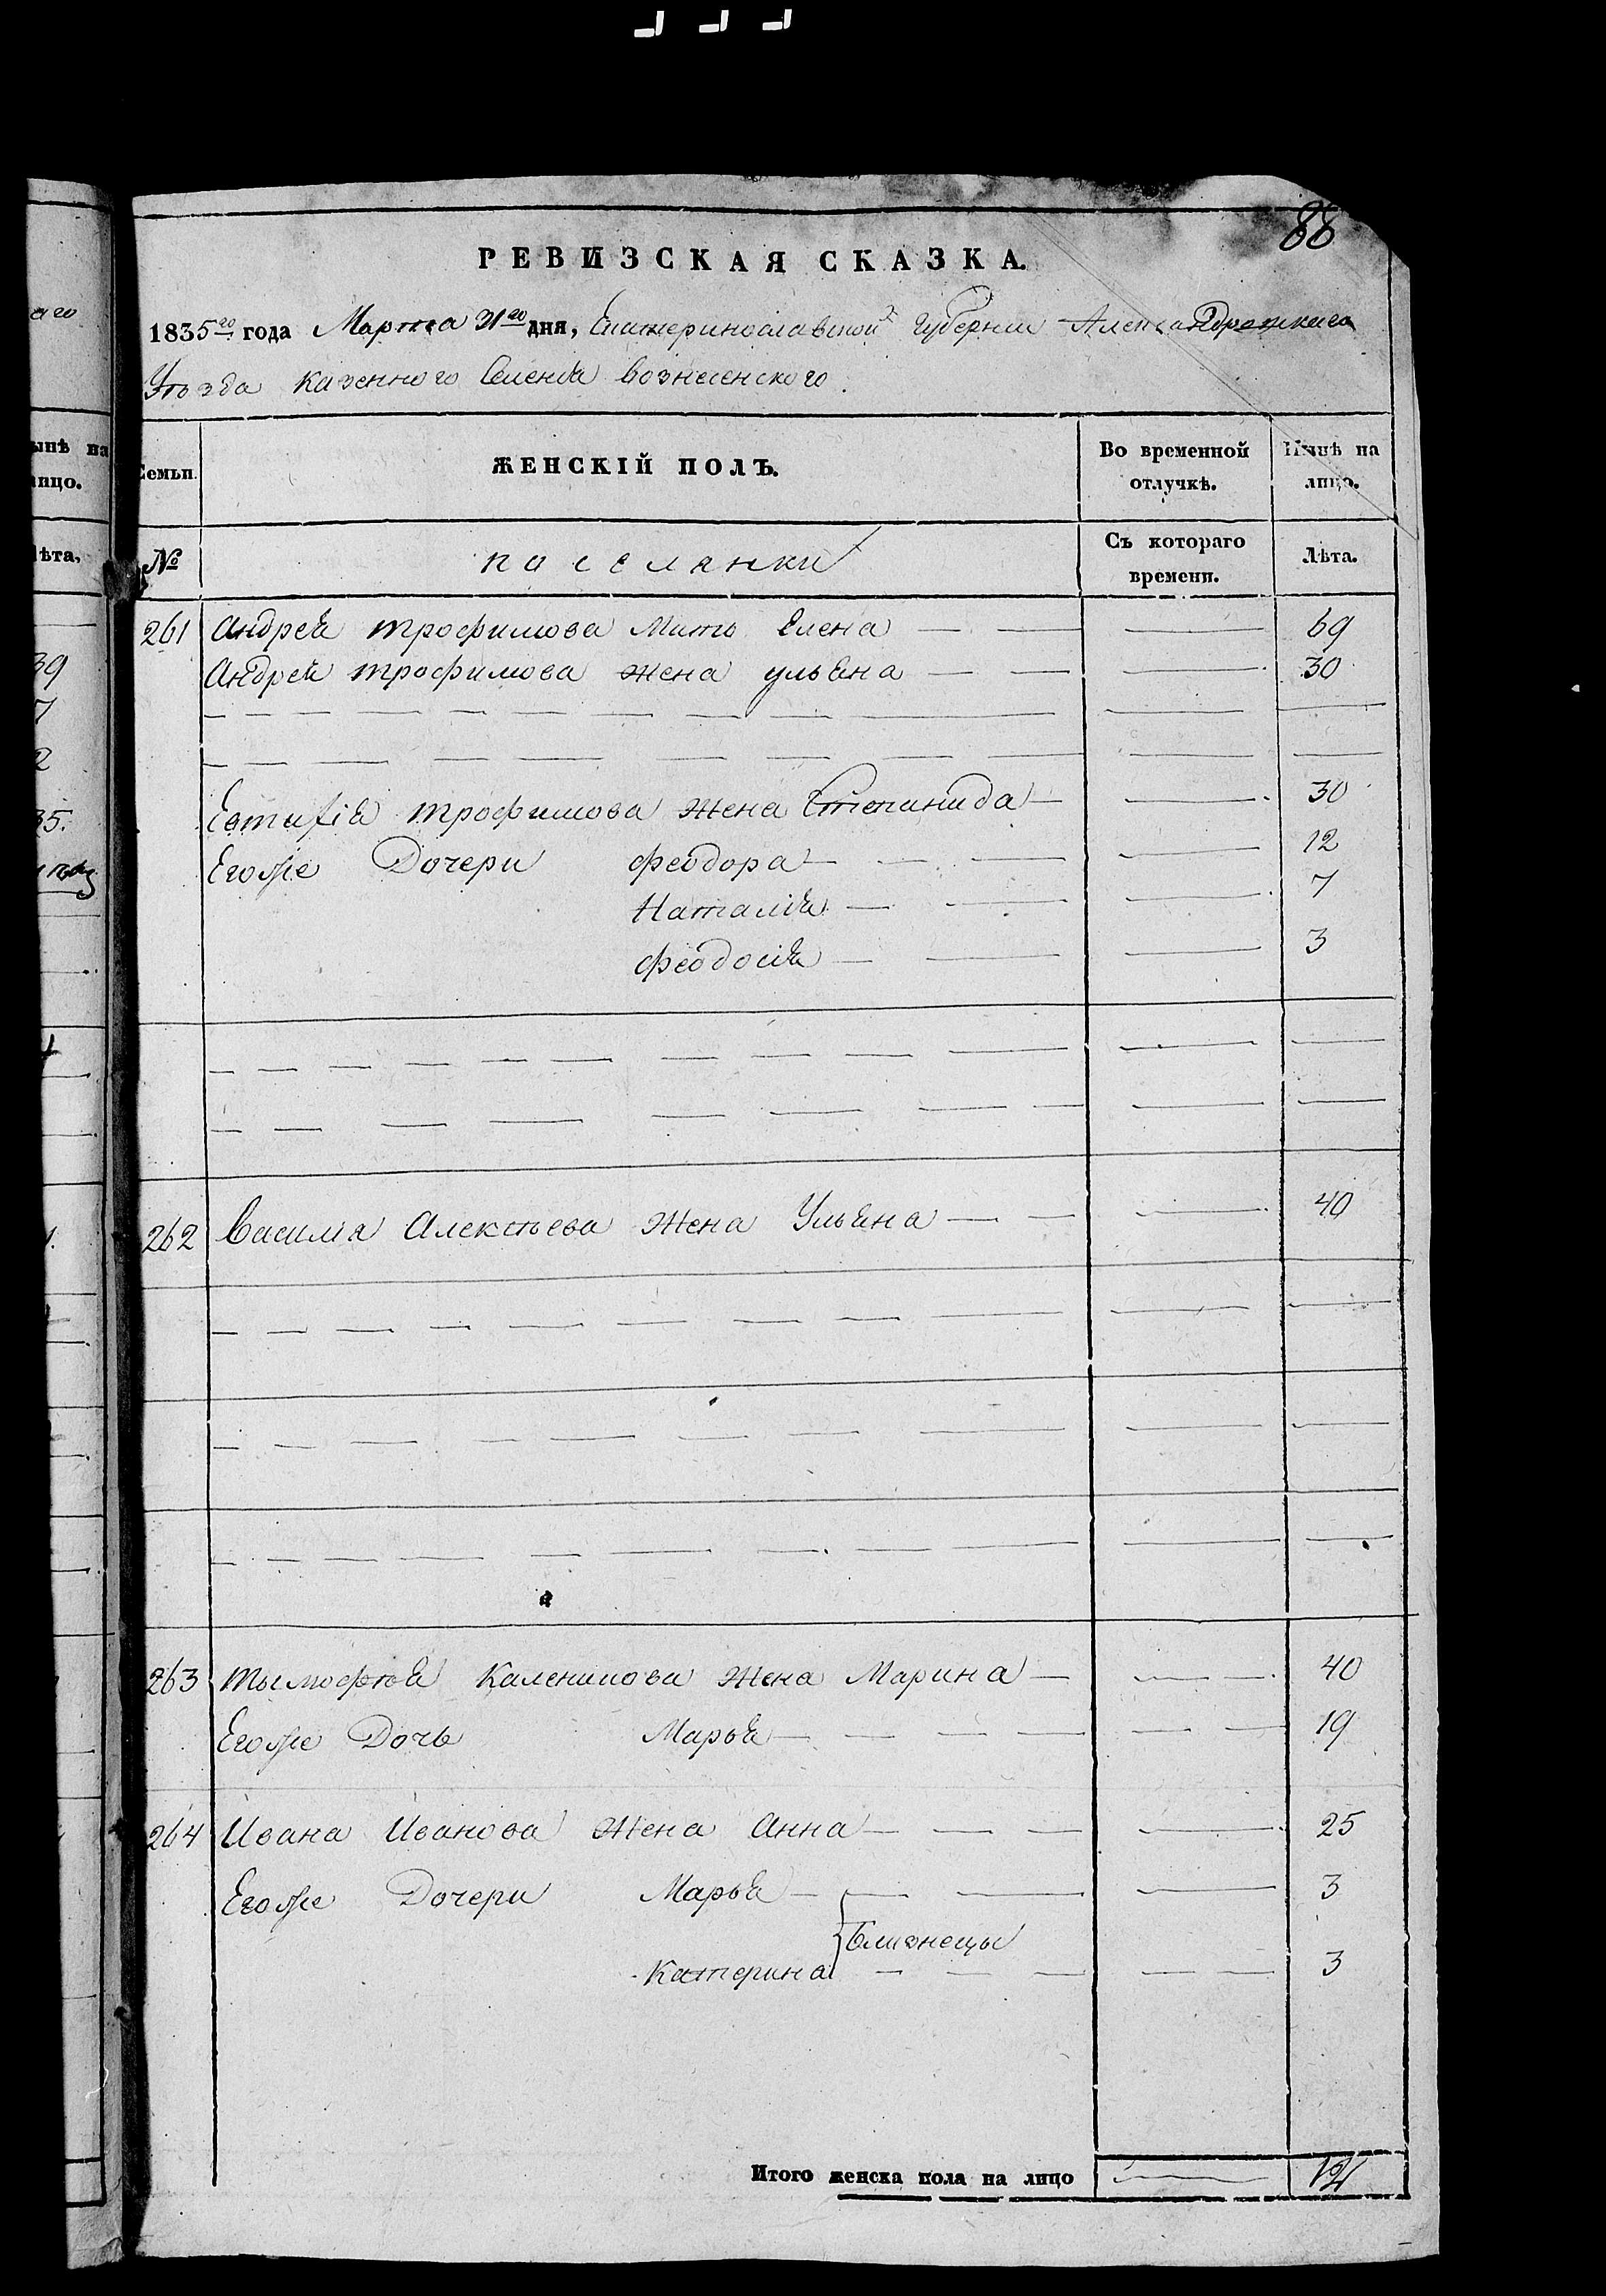 88
РЕВИЗСКАЯ СКАЗКА.
1835го года Марта 31го дня, Екатеринославской Губернии Александровскаго
Уѣзда казенного Селенія Вознесенского.
ЖЕНСКІЙ ПОЛЪ.
Во временной отлучкѣ.
Нынѣ на лицо.
Семьи.
№
поселянки
Съ котораго времени.
Лѣта.
261 Андрея трофимова Мать Елена — — — 69
Андрея трофимова жена ульяна — — — 30
Евтифія трофимова жена Степанида — — 30
Егоже Дочери феодора — — — — 12
Наталія — — — 7
феодосія — — — 3
262 Василія Алексѣева жена Ульяна — — — 40
263 тымофѣя каленикова жена Марина — — — 40
Егоже Дочь Марья — — — — — — 19
264 Ивана Иванова жена Анна — — — — 25
Егоже Дочери Марья — — — — 3
близнецы
Катерина — — — — — 3
Итого женска пола на лицо — 12
ынѣ на
лицо.
лѣта,
39
7
2
35.